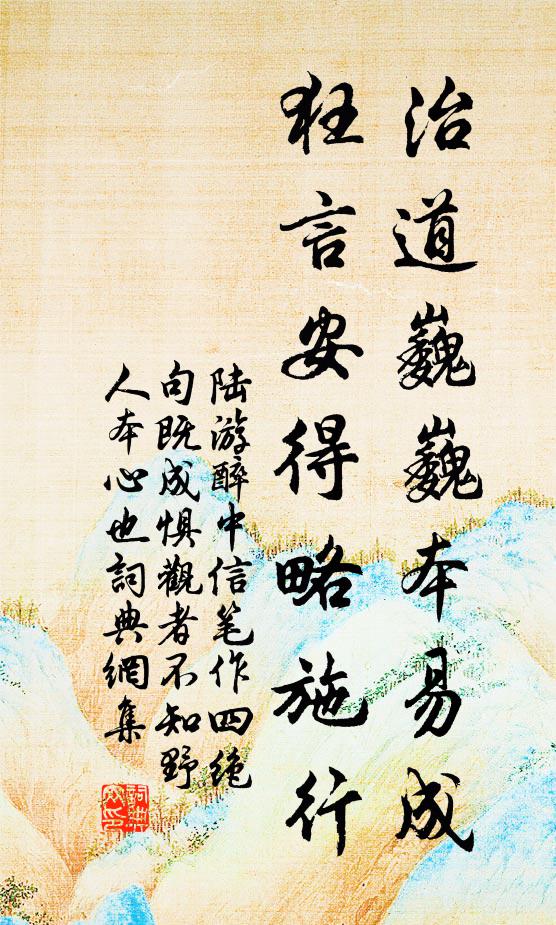 治道巍巍本易成
狂言安得略施行
陆游醉中信笔作四绝
句既成惧觀者不知野
人本心也詞典網集